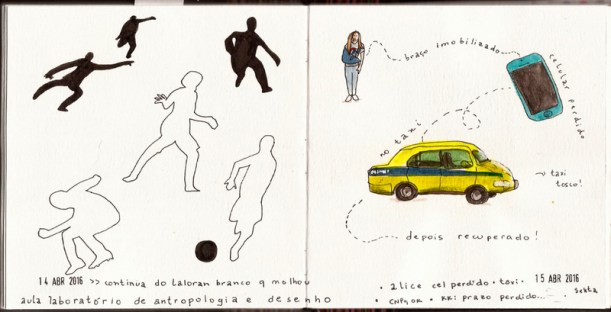 14 ABR 2016 >> continua do Laloran branco q molhou
aula laboratório de antropologia e desenho
braço imobilizado
celular perdido
no taxi
~ taxi
tosco!
depois recuperado!
• alice cel perdido • taxi • 15 ABR 2016
• CNPq OK • RR: prazo perdido... sexta